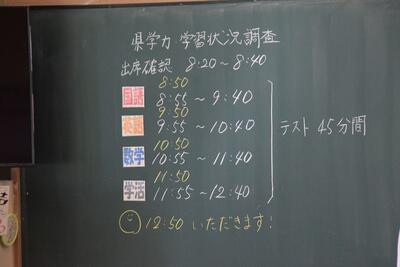 県学力・学習状況調査
出席確認 8:20～8:40
8:50
国語 8:55～9:40
9:50
英語 9:55～10:40
10:50
数学 10:55～11:40
11:50
学活 11:55～12:40
テスト 45分間
12:50 いただきます!